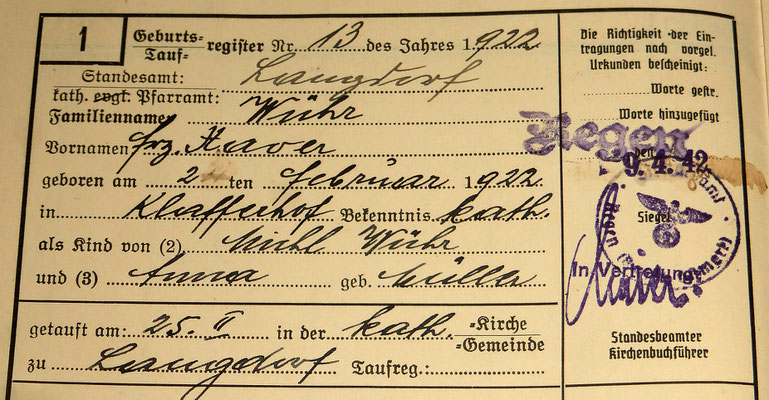 1
Geburts-
Tauf-
register Nr. 13 des Jahres 1922
Standesamt: Langdorf
kath. evgl. Pfarramt:
Familienname Wühr
Vornamen frz. Xaver
geboren am 2 ten Februar 1922
in Klafferhof Bekenntnis kath.
als Kind von (2) Michl Wühr
und (3) Anna geb. Müller
getauft am: 25. II in der kath. -Kirche
-Gemeinde
zu Langdorf Taufreg.:
Die Richtigkeit der Ein-
tragungen nach vorgel.
Urkunden bescheinigt:
Worte gestr.
Worte hinzugefügt
Regen
den
9. 4. 42
Siegel
In Vertretung
Standesbeamter
Kirchenbuchführer